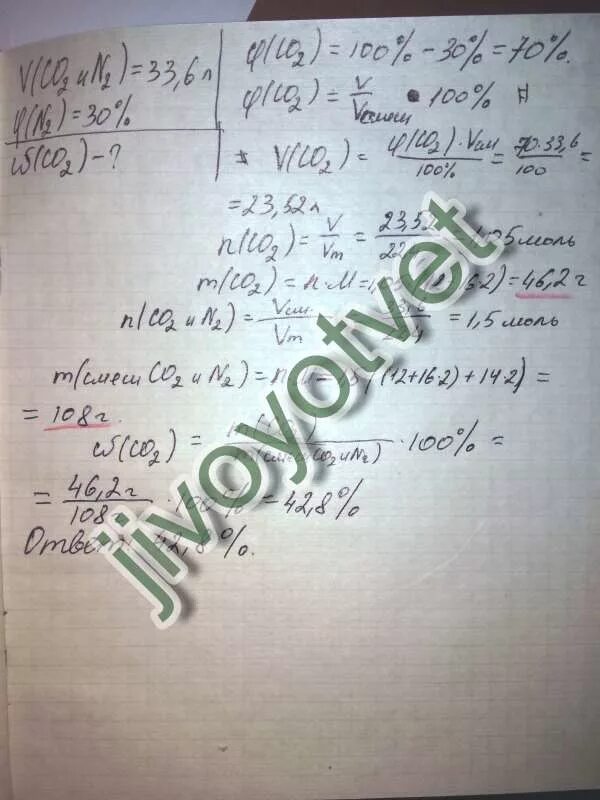 V(CO₂ и N₂) = 33,6 л
φ(N₂) = 30%
ω(CO₂) – ?
φ(CO₂) = 100% – 30% = 70%.
φ(CO₂) = V/Vсмеси · 100%
V(CO₂) = φ(CO₂)·Vсм/100% = 70·33,6/100 =
= 23,52 л
n(CO₂) = V/Vm = 23,52/22 = 1,05 моль
m(CO₂) = n·M = 16·2) = 46,2 г
n(CO₂ и N₂) = Vсм./Vm = 1,5 моль
m(смеси CO₂ и N₂) = ((12+16·2)+14·2) =
= 108 г.
ω(CO₂) = m(смеси CO₂ и N₂) · 100% =
= 46,2 г/108 г · 100% = 42,8%
Ответ: 42,8%.
jivoyotvet